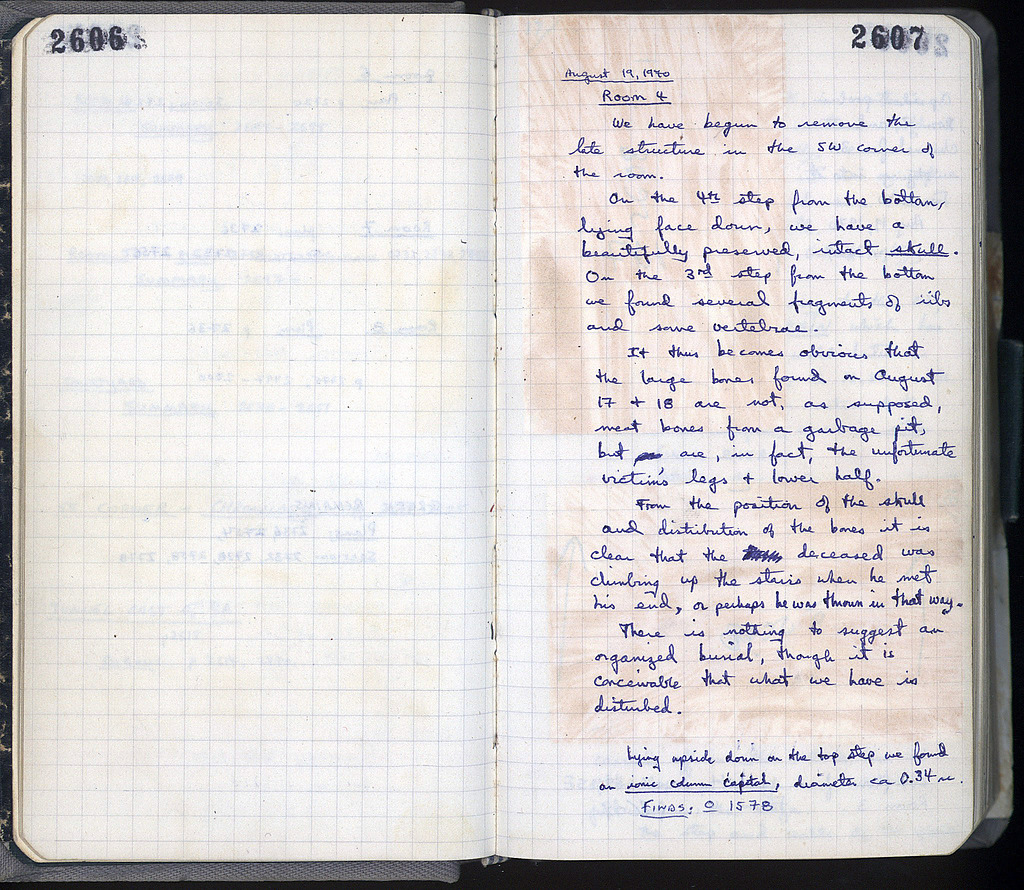 2606
2607
August 19, 1970
Room 4
We have begun to remove the
late structure in the SW corner of
the room.
On the 4th step from the bottom,
lying face down, we have a
beautifully preserved, intact skull.
On the 3rd step from the bottom
we found several fragments of ribs
and some vertebrae.
It thus becomes obvious that
the large bones found on August
17 + 18 are not, as supposed,
meat bones from a garbage pit,
but are, in fact, the unfortunate
victim's legs + lower half.
From the position of the skull
and distribution of the bones it is
clear that the deceased was
climbing up the stairs when he met
his end, or perhaps he was thrown in that way.
There is nothing to suggest an
organized burial, though it is
conceivable that what we have is
disturbed.
Lying upside down on the top step we found
an ionic column capital, diameter ca 0.34 m.
FINDS: O 1578